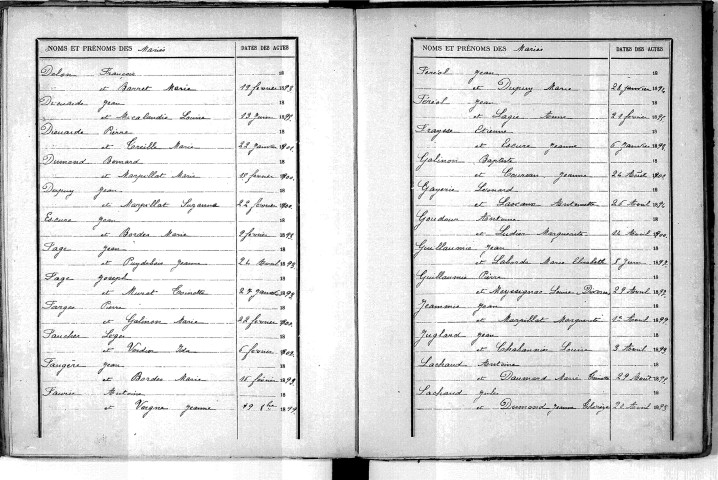 NOMS ET PRÉNOMS DES Mariés DATES DES ACTES
Delon François 18
et Barret Marie 19 février 1898
Drouarde Jean 18
et Mecalandie Louise 13 Juin 1895
Drouarde Pierre 18
et Treille Marie 22 Janvier 1901
Dumond Bernard 18
et Mazpillat Marie 18 février 1900
Dupuy Jean 18
et Mazpillat Suzanne 22 février 1900
Escure Jean 18
et Bordes Marie 9 février 1898
Fage Jean 18
et Puydebois Jeanne 24 Avril 1898
Fage Joseph 18
et Murat Toinette 27 Janvier 1898
Farges Pierre 18
et Galinon Marie 22 février 1900
Faucher Léger 18
et Verdier Ida 6 février 1902
Faugère Jean 18
et Bordes Marie 15 février 1898
Faurie Antoine 18
et Vergne Jeanne 19 8bre 1899
NOMS ET PRÉNOMS DES Mariés DATES DES ACTES
Féréol Jean 18
et Dupuy Marie 26 Janvier 1896
Féréol Jean 18
et Lagie Anne 21 février 1895
Fraysse Etienne 18
et Escure Jeanne 6 Janvier 1898
Galinon Baptiste 18
et Jeanne 26 Août 1900
Gayerie Léonard 18
et Antoinette 25 Avril 1896
Goudoux Antoine 18
et Ludier Marguerite 24 Avril 1900
Guillaumie Jean 18
et Laborde Marie Elisabeth 8 Juin 1897
Guillaumie Pierre 18
et Meyssignac Louise 29 Avril 1897
Jeammie Jean 18
et Mazpillat Marguerite 1er Avril 1899
Jugland Jean 18
et Chabannier Louise 3 Avril 1899
Lachaud Antoine 18
et Daumard Marie 29 Août 1895
Lachaud Jules 18
et Dumond Jeanne Thérèse 21 Avril 1898